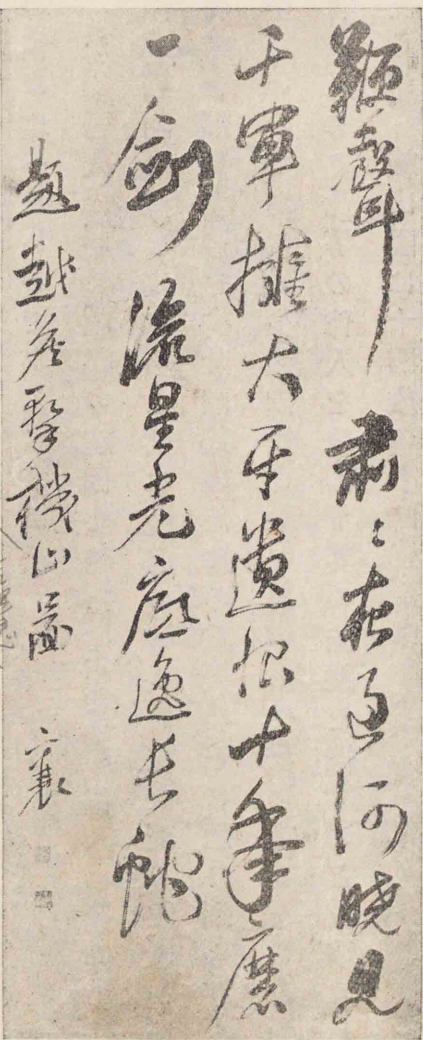 鞭聲肅〻夜過河曉見
千軍擁大牙遺恨十年磨
一劍流星光底逸長蛇
題越公擊機山圖 襄